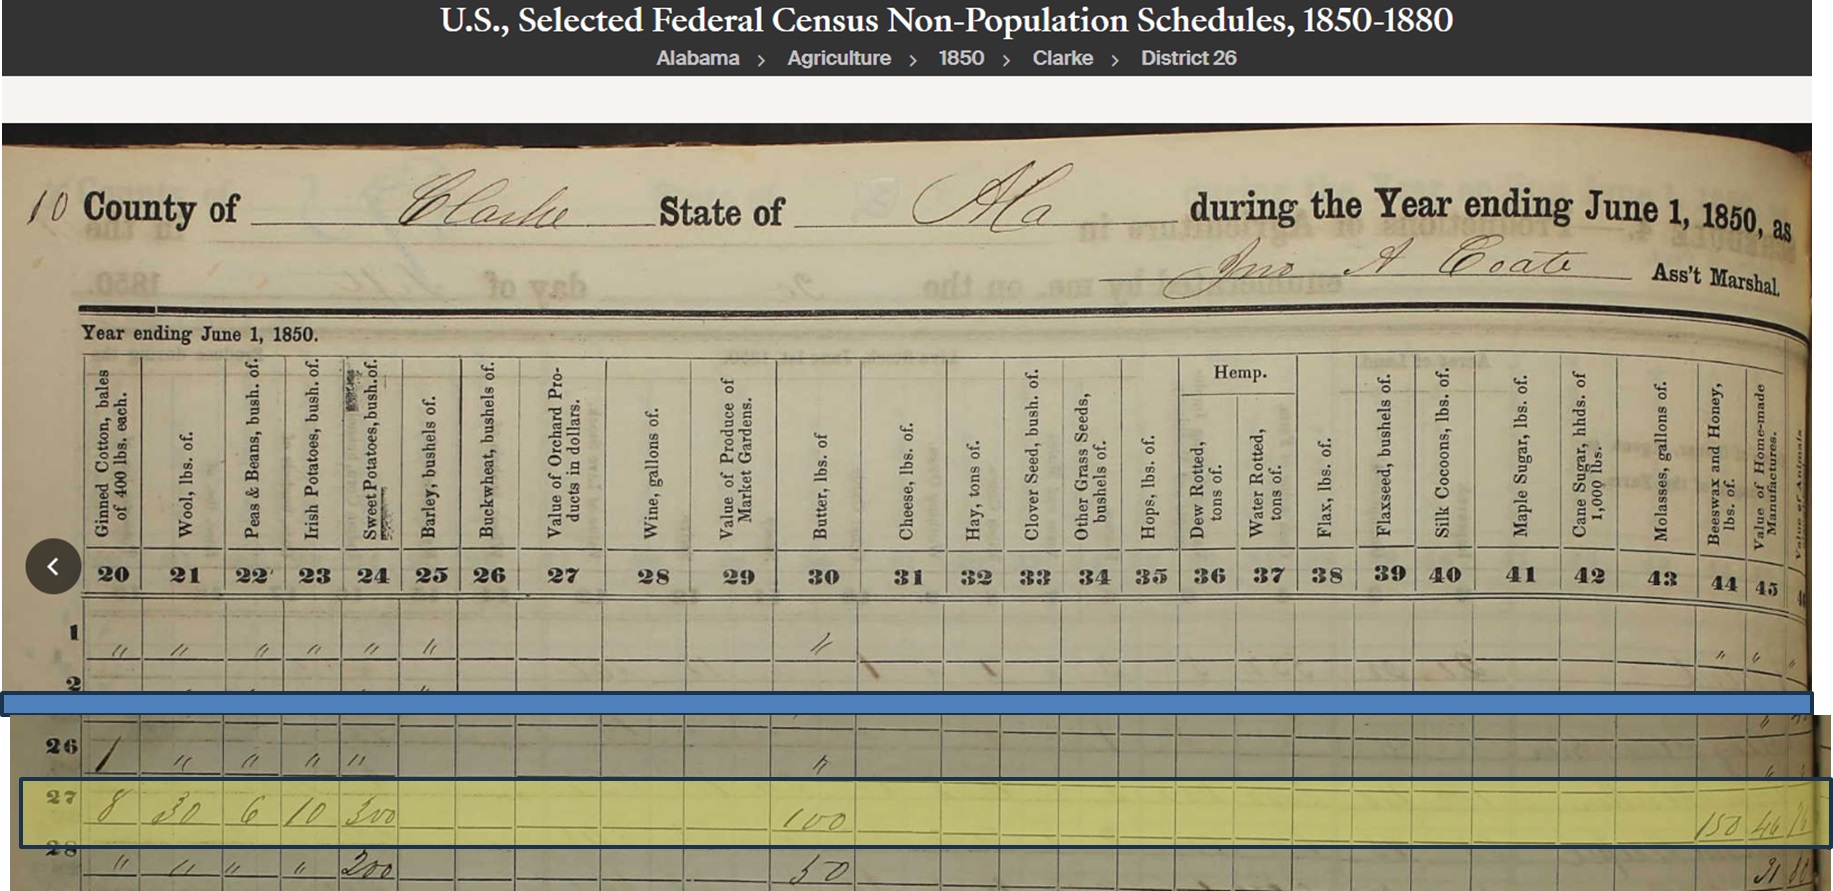 U.S., Selected Federal Census Non-Population Schedules, 1850-1880
Alabama > Agriculture > 1850 > Clarke > District 26
10 County of Clarke State of Ala during the Year ending June 1, 1850, as
Jno A Coate Ass't Marshal.
Year ending June 1, 1850.
Ginned Cotton, bales of 400 lbs. each.
Wool, lbs. of.
Peas & Beans, bush. of.
Irish Potatoes, bush. of.
Sweet Potatoes, bush. of.
Barley, bushels of.
Buckwheat, bushels of.
Value of Orchard Pro-
ducts in dollars.
Wine, gallons of.
Value of Produce of
Market Gardens.
Butter, lbs. of
Cheese, lbs. of.
Hay, tons of.
Clover Seed, bush. of.
Other Grass Seeds,
bushels of.
Hops, lbs. of.
Hemp.
Dew Rotted,
tons of.
Water Rotted,
tons of.
Flax, lbs. of.
Flaxseed, bushels of.
Silk Cocoons, lbs. of.
Maple Sugar, lbs. of.
Cane Sugar, hhds. of
1,000 lbs.
Molasses, gallons of.
Beeswax and Honey,
lbs. of.
Value of Home-made
Manufactures.
Value of Animals
20 21 22 23 24 25 26 27 28 29 30 31 32 33 34 35 36 37 38 39 40 41 42 43 44 45
1 " " " " " " " " " "
2
26 1 " " " " "
27 8 30 6 10 300 100 150
28 " " " " 200 50